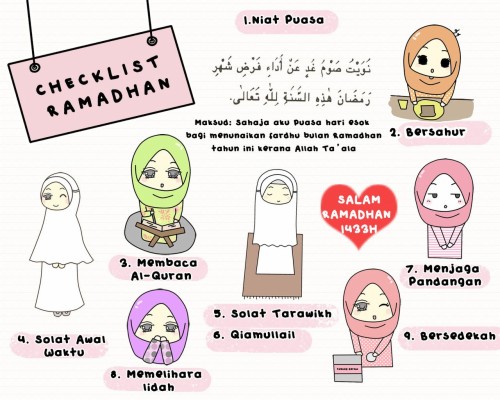 CHECKLIST
RAMADHAN
1.Niat Puasa
نَوَيْتُ صَوْمَ غَدٍ عَنْ أَدَاءِ فَرْضِ شَهْرِ
رَمَضَانَ هٰذِهِ السَّنَةِ لِلّٰهِ تَعَالَى.
Maksud: Sahaja aku puasa hari esok
bagi menunaikan fardhu bulan Ramadhan
tahun ini kerana Allah Ta'ala
2. Bersahur
3. Membaca
Al-Quran
4. Solat Awal
Waktu
5. Solat Tarawikh
6. Qiamullail
SALAM
RAMADHAN
1433H
7. Menjaga
Pandangan
8. Memelihara
lidah
9. Bersedekah